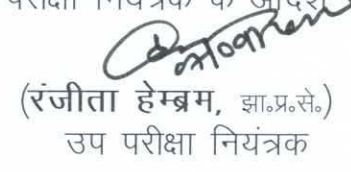 परीक्षा नियंत्रक के आदेश
(रंजीता हेम्ब्रम, झा.प्र.से.)
उप परीक्षा नियंत्रक